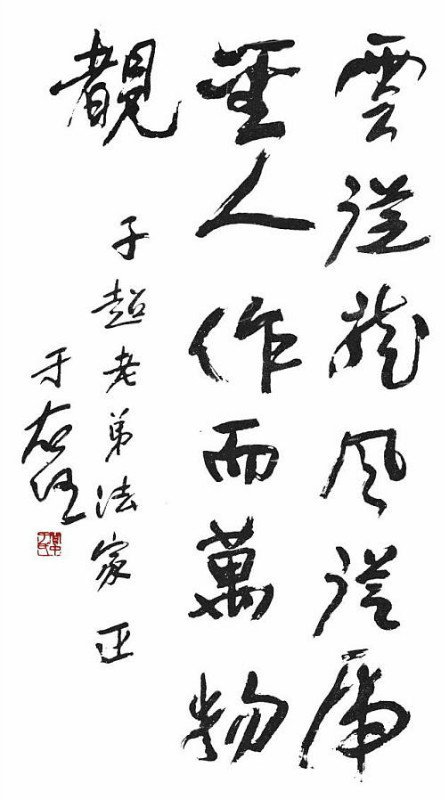 雲從龍風從虎
聖人作而萬物
覩
子超老弟法家正
于右任